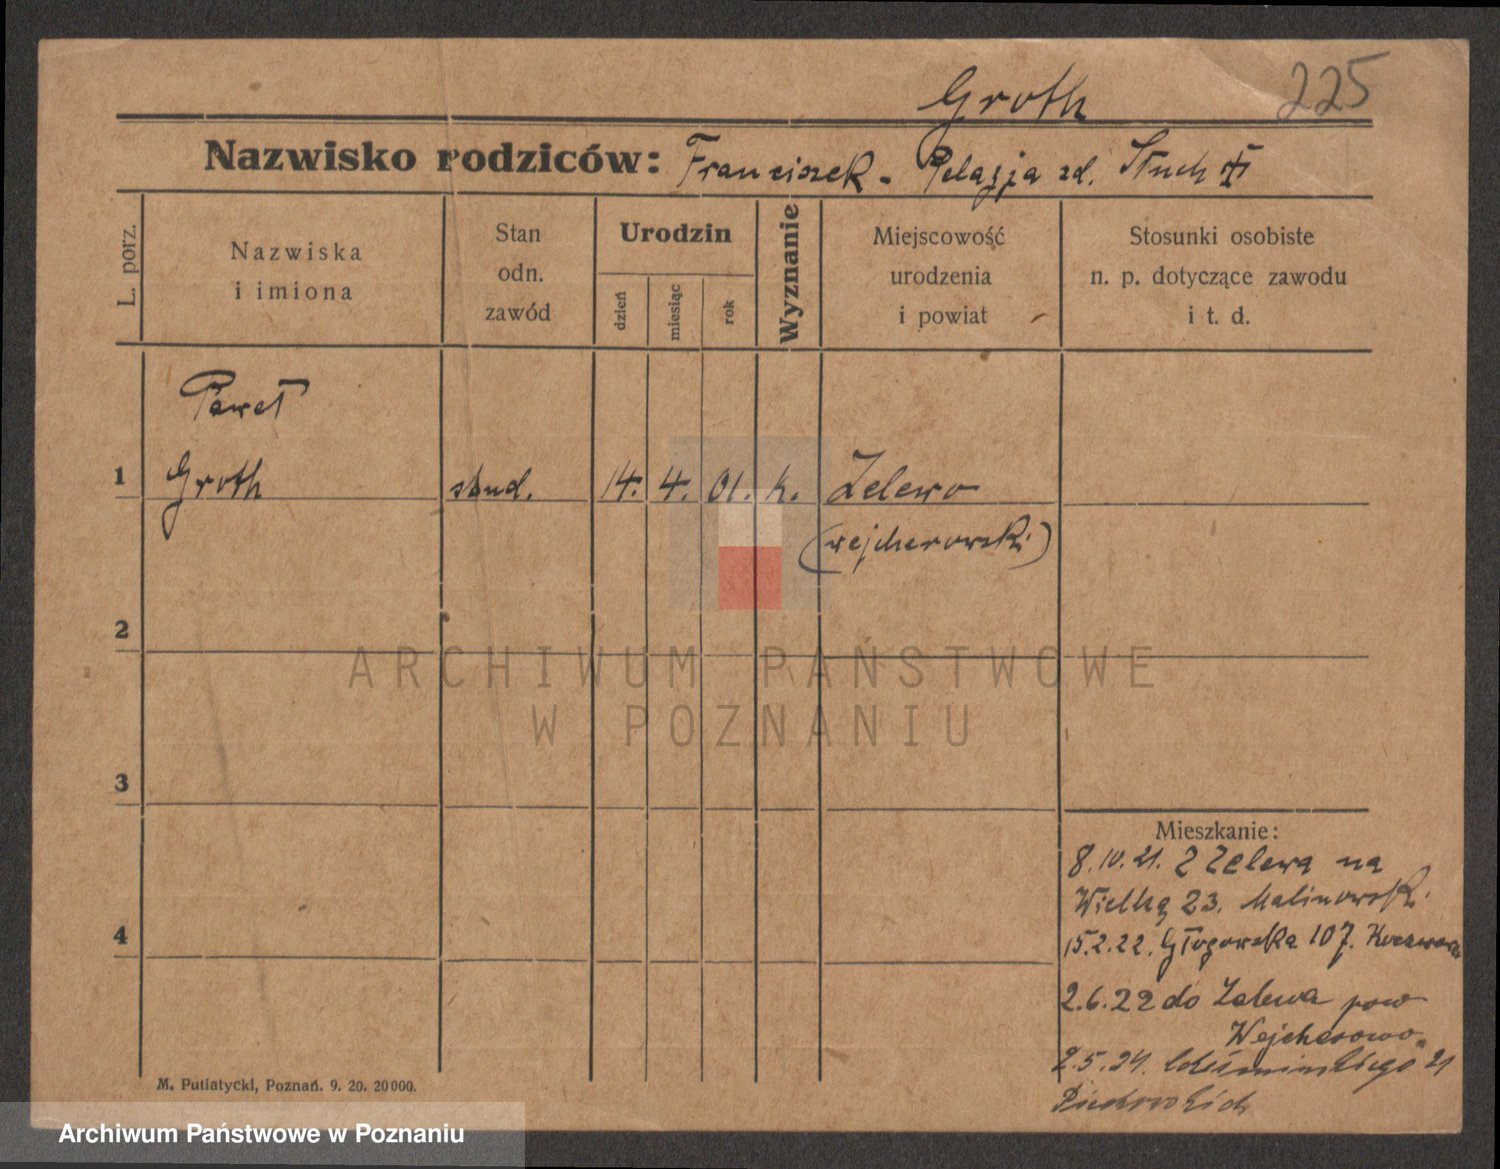 Groth 225
Nazwisko rodziców: Franciszek - Pelagja zd. Stuch
L. porz.
Nazwiska
i imiona
Stan
odn.
zawód
Urodzin
dzień
miesiąc
rok
Wyznanie
Miejscowość
urodzenia
i powiat
Stosunki osobiste
n. p. dotyczące zawodu
i t. d.
Paweł
1 Groth stud. 14. 4. 01. k. Zelewo
(wejherowski)
2
ARCHIWUM PAŃSTWOWE
W POZNANIU
3
Mieszkanie:
8.10.21. z Zelewa na
Wielką 23. Malinowsk.
4
15.2.22. Głogowska 107.
2.6.22 do Zelewa pow
Wejherowo.
2.5.24. 21
M. Putiatycki, Poznań. 9. 20. 20000.
Archiwum Państwowe w Poznaniu